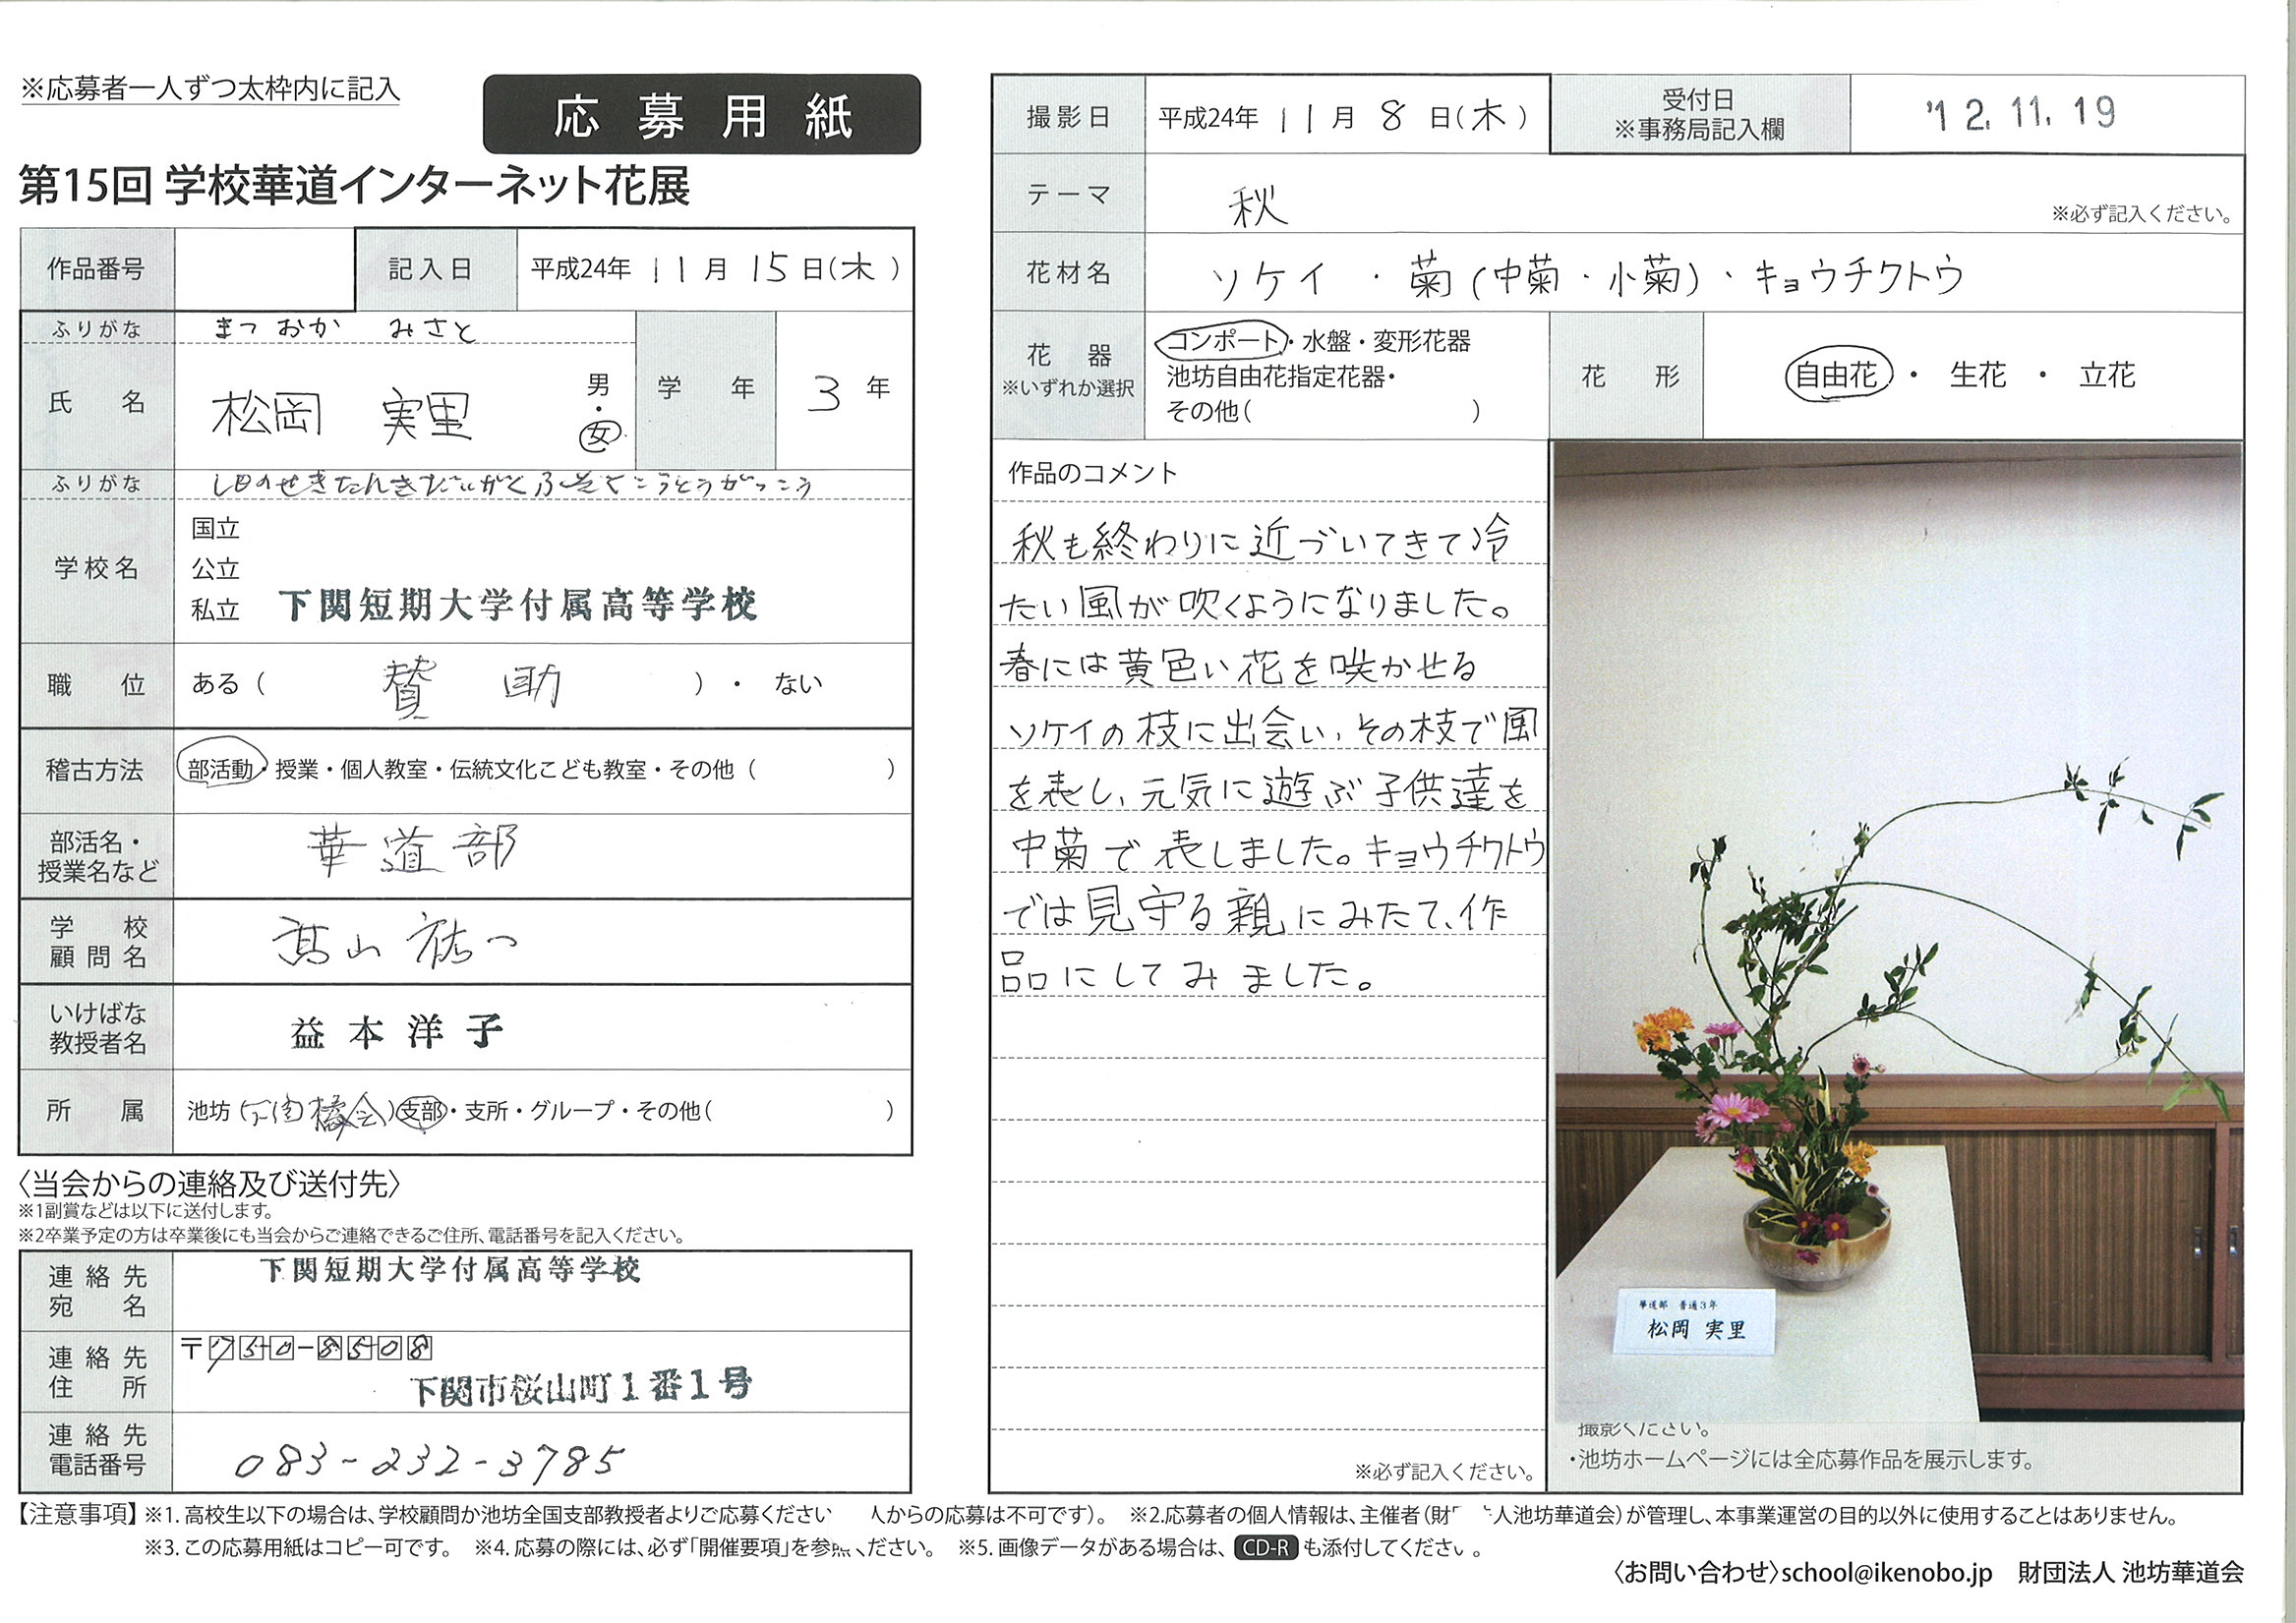 ※応募者一人ずつ太枠内に記入
応募用紙
第15回 学校華道インターネット花展
作品番号
記入日 平成24年 11月 15日(木)
ふりがな まつおか みさと
氏名 松岡 実里 男・女
学年 3年
ふりがな しものせきたんきだいがくふぞくこうとうがっこう
学校名 国立
公立
私立 下関短期大学付属高等学校
職位 ある( 賛助 )・ ない
稽古方法 部活動・授業・個人教室・伝統文化こども教室・その他( )
部活名・
授業名など 華道部
学校
顧問名 髙山 祐一
いけばな
教授者名 益本洋子
所属 池坊(下関橘会)支部・支所・グループ・その他( )
〈当会からの連絡及び送付先〉
※1副賞などは以下に送付します。
※2卒業予定の方は卒業後にも当会からご連絡できるご住所、電話番号を記入ください。
連絡先
宛名 下関短期大学付属高等学校
連絡先
住所 〒750-8508
下関市桜山町1番1号
連絡先
電話番号 083-232-3785
撮影日 平成24年 11月 8日(木)
受付日
※事務局記入欄 '12.11.19
テーマ 秋 ※必ず記入ください。
花材名 ソケイ・菊(中菊・小菊)・キョウチクトウ
花器
※いずれか選択
コンポート・水盤・変形花器
池坊自由花指定花器・
その他( )
花形 自由花 ・ 生花 ・ 立花
作品のコメント
秋も終わりに近づいてきて冷
たい風が吹くようになりました。
春には黄色い花を咲かせる
ソケイの枝に出会い、その枝で風
を表し、元気に遊ぶ子供達を
中菊で表しました。キョウチクトウ
では見守る親にみたて、作
品にしてみました。
※必ず記入ください。
華道部 普通3年
松岡 実里
撮影ください。
・池坊ホームページには全応募作品を展示します。
【注意事項】※1. 高校生以下の場合は、学校顧問か池坊全国支部教授者よりご応募ください 人からの応募は不可です)。 ※2.応募者の個人情報は、主催者(財 人池坊華道会)が管理し、本事業運営の目的以外に使用することはありません。
※3. この応募用紙はコピー可です。 ※4. 応募の際には、必ず「開催要項」を参照ください。 ※5. 画像データがある場合は、 CD-R も添付してください。
〈お問い合わせ〉school@ikenobo.jp 財団法人 池坊華道会